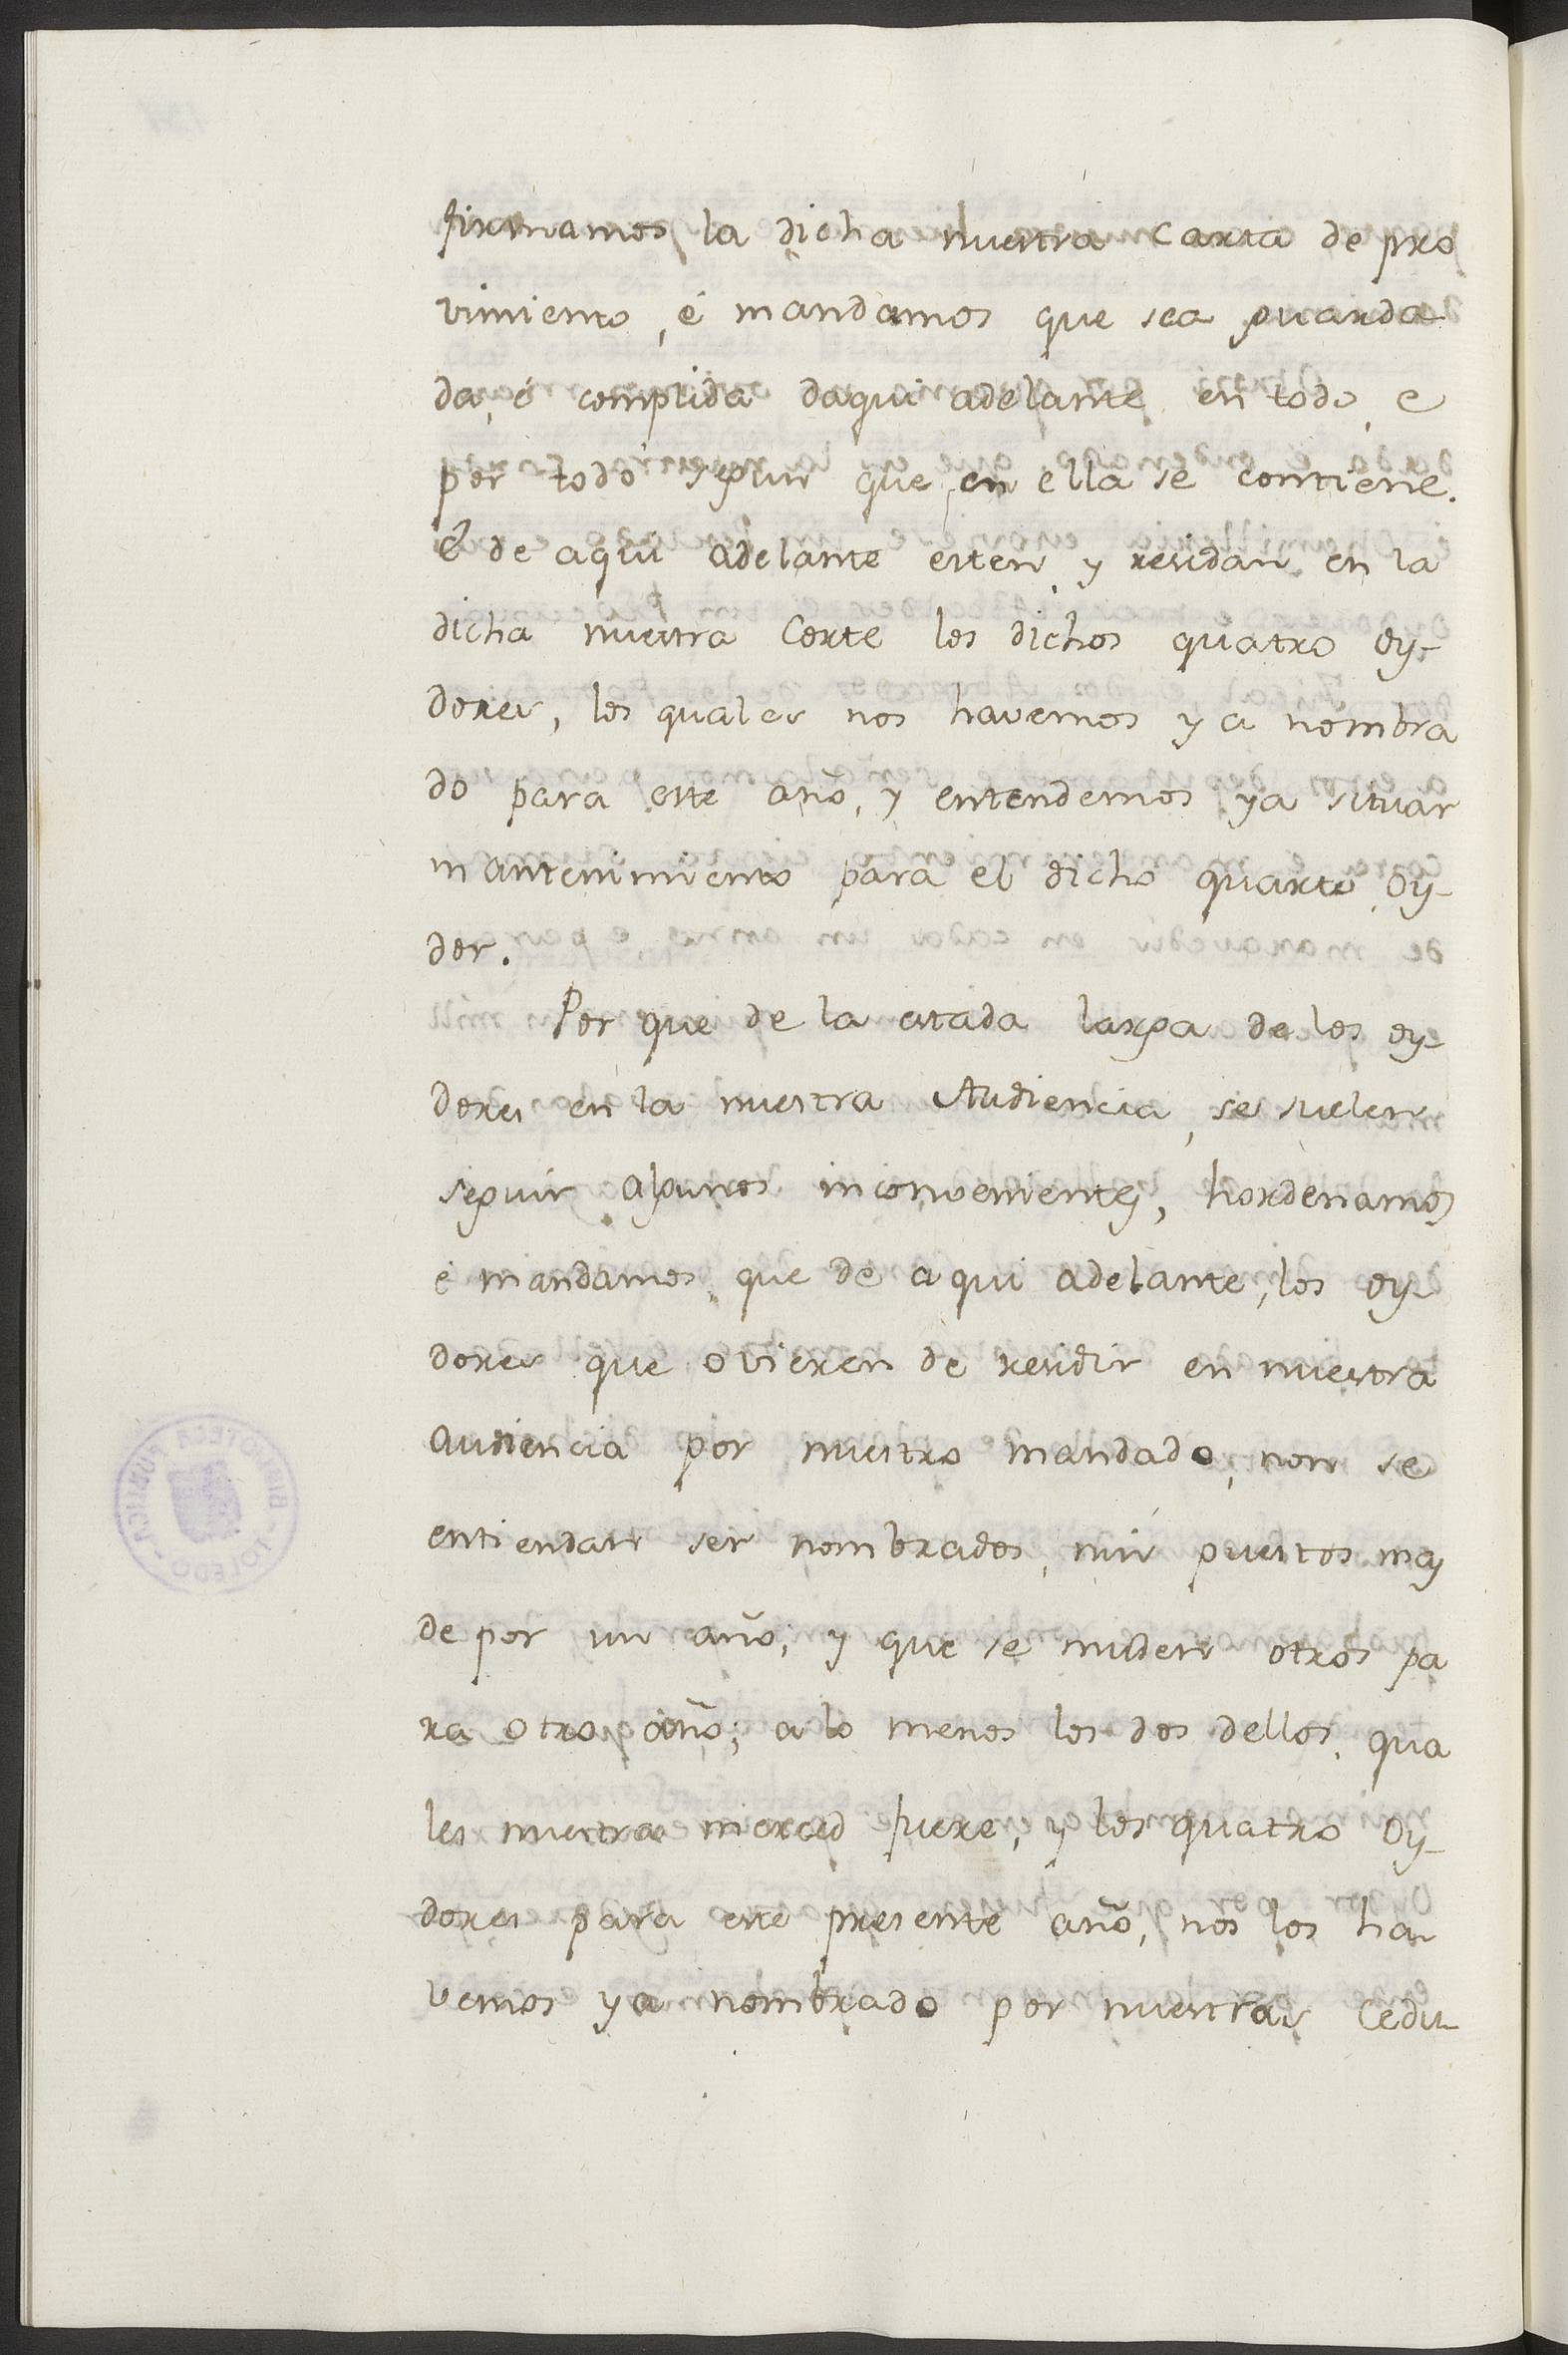 firmamos la dicha nuestra carta de pro
vimiento, é mandamos que sea guarda
da, é complida daqui adelante en todo, e
por todo segun que en ella se contiene.
E de aqui adelante esten y residan en la
dicha nuestra Corte los dichos quatro Oy-
dores, los quales nos havemos ya nombra
do para este año, y entendemos ya situar
mantenimiento para el dicho quarto Oy-
dor.
Por que de la estada larga de los oy-
dores en la nuestra Audiencia, se suelen
seguir algunos inconvenientes, hordenamos
é mandamos, que de aqui adelante, los oy-
dores que ovieren de residir en nuestra
audiencia por nuestro mandado, non se
entiendan ser nombrados, nin puestos mas
de por un año; y que se muden otros pa
ra otro año; a lo menos los dos dellos, qua
les nuestra merced fuere, y los quatro Oy-
dores para este presente año, nos los ha
vemos ya nombrado por nuestras Cedu-
BIBLIOTECA PUBLICA
TOLEDO